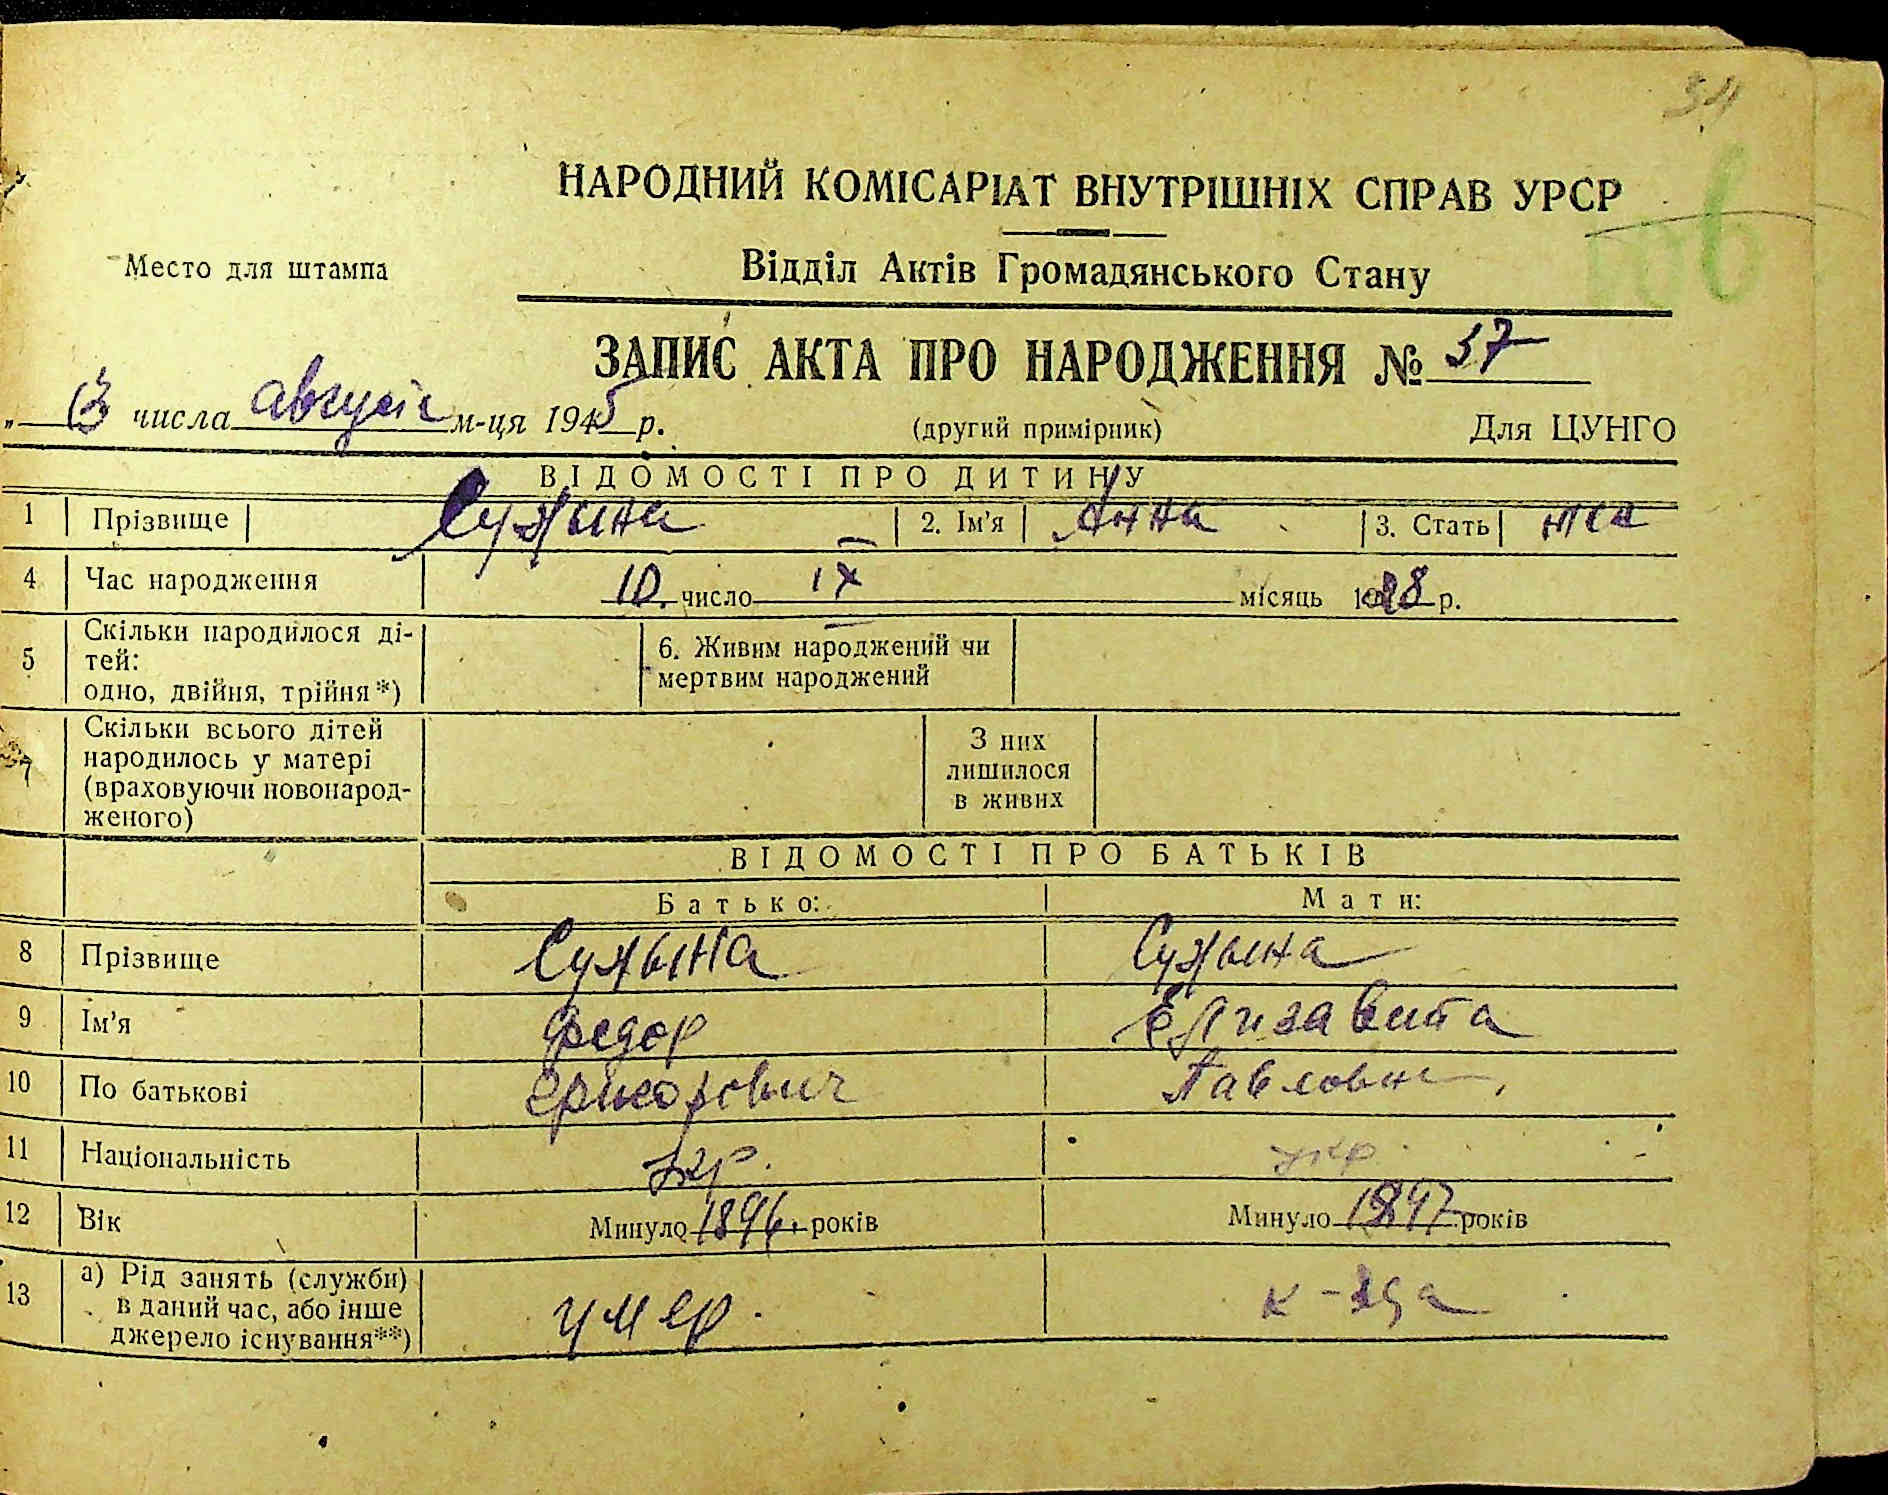 34
НАРОДНИЙ КОМІСАРІАТ ВНУТРІШНІХ СПРАВ УРСР
Место для штампа
Відділ Актів Громадянського Стану
ЗАПИС АКТА ПРО НАРОДЖЕННЯ № 37
„ 13 числа август м-ця 1945 р.
(другий примірник) Для ЦУНГО
ВІДОМОСТІ ПРО ДИТИНУ
1 Прізвище Сужына 2. Ім'я Анна 3. Стать
4 Час народження 10. число IX місяць 1928 р.
5 Скільки народилося ді-
тей:
одно, двійня, трійня*)
6. Живим народжений чи
мертвим народжений
7 Скільки всього дітей
народилось у матері
(враховуючи новонарод-
женого)
З них
лишилося
в живих
ВІДОМОСТІ ПРО БАТЬКІВ
Батько: Мати:
8 Прізвище Сужына Сужына
9 Ім'я Федор Елизавита
10 По батькові Григорович Павловна
11 Національність укр. укр.
12 Вік Минуло 1896. років Минуло 1897 років
13 а) Рід занять (служби)
в даний час, або інше
джерело існування**)
умер.